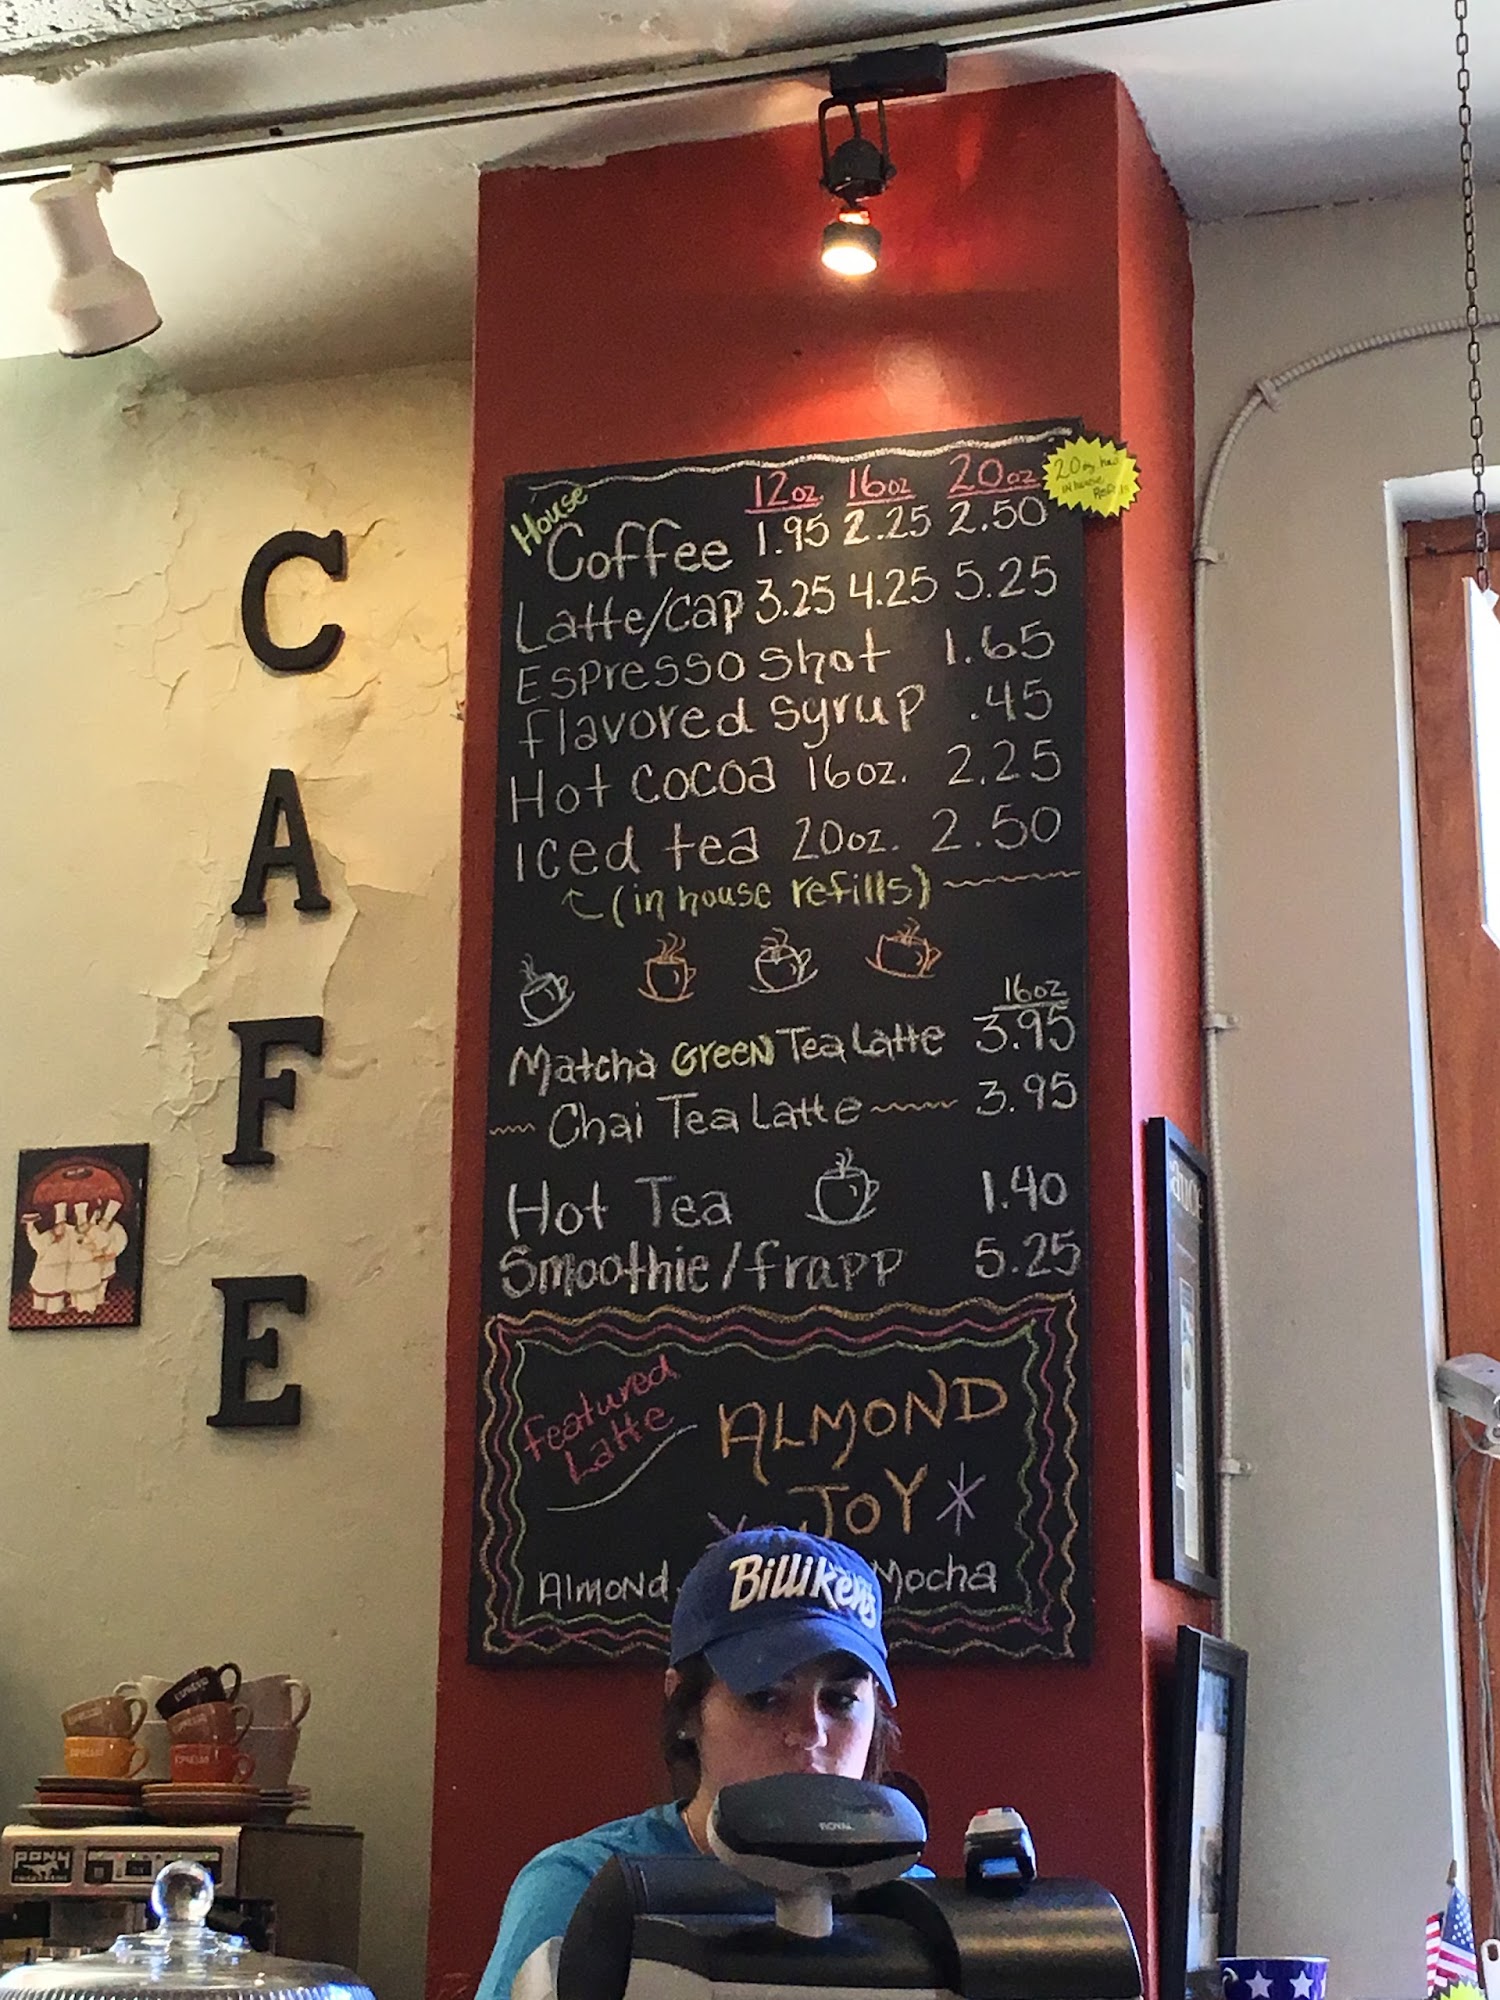 12oz. 16oz 20oz
House Coffee 1.95 2.25 2.50
20oz has
IN house
Refills
Latte/Cap 3.25 4.25 5.25
Espresso shot 1.65
flavored syrup .45
Hot cocoa 16oz. 2.25
Iced tea 20oz. 2.50
(in house refills)
16oz
Matcha GREEN Tea Latte 3.95
Chai Tea Latte 3.95
Hot Tea 1.40
Smoothie/frapp 5.25
featured
Latte
ALMOND
JOY
Almond Mocha
CAFE
Billikens
ESPRESSO
ESPRESSO
ESPRESSO
ESPRESSO
PONY
ROYAL